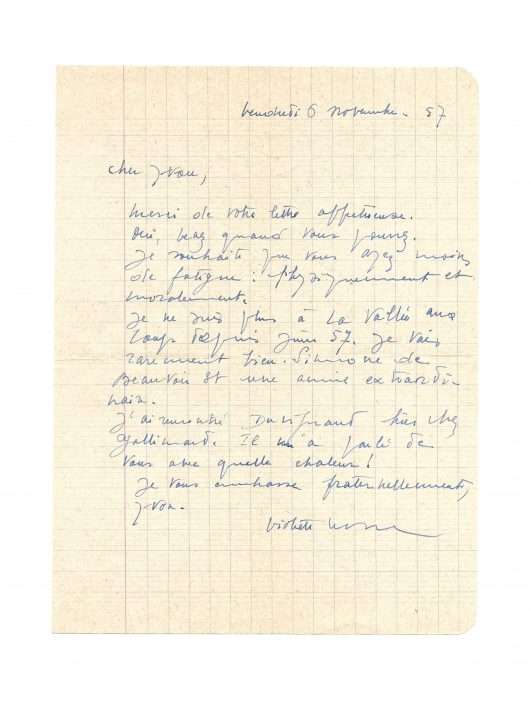 Vendredi 6 novembre. 57
Cher Yvon,
Merci de votre lettre affectueuse.
Oui, venez quand vous pourrez.
Je souhaite que vous ayez moins
de fatigue : physiquement et
moralement.
Je ne suis plus à La Vallée aux
Loups depuis juin 57. Je vais
rarement bien. Simone de
Beauvoir est une amie extraordi-
naire.
J'ai rencontré hier chez
Gallimard. Il m'a parlé de
vous avec quelle chaleur !
Je vous embrasse fraternellement,
Yvon.
Violette Leduc